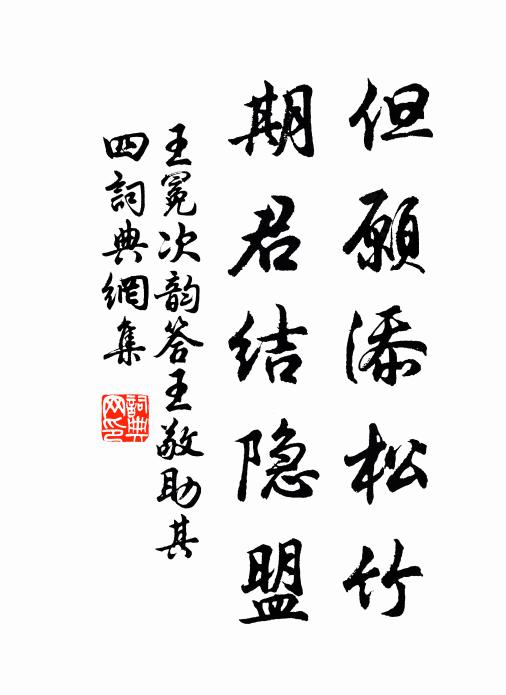 但願添松竹
期君结隐盟
王冕次韵答王敬助其
四詞典網集
詞典
网印